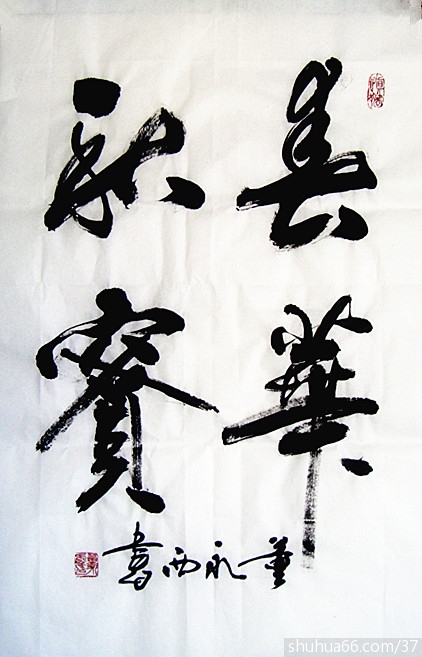 春華
秋實
董永西書
shuhua66.com/37